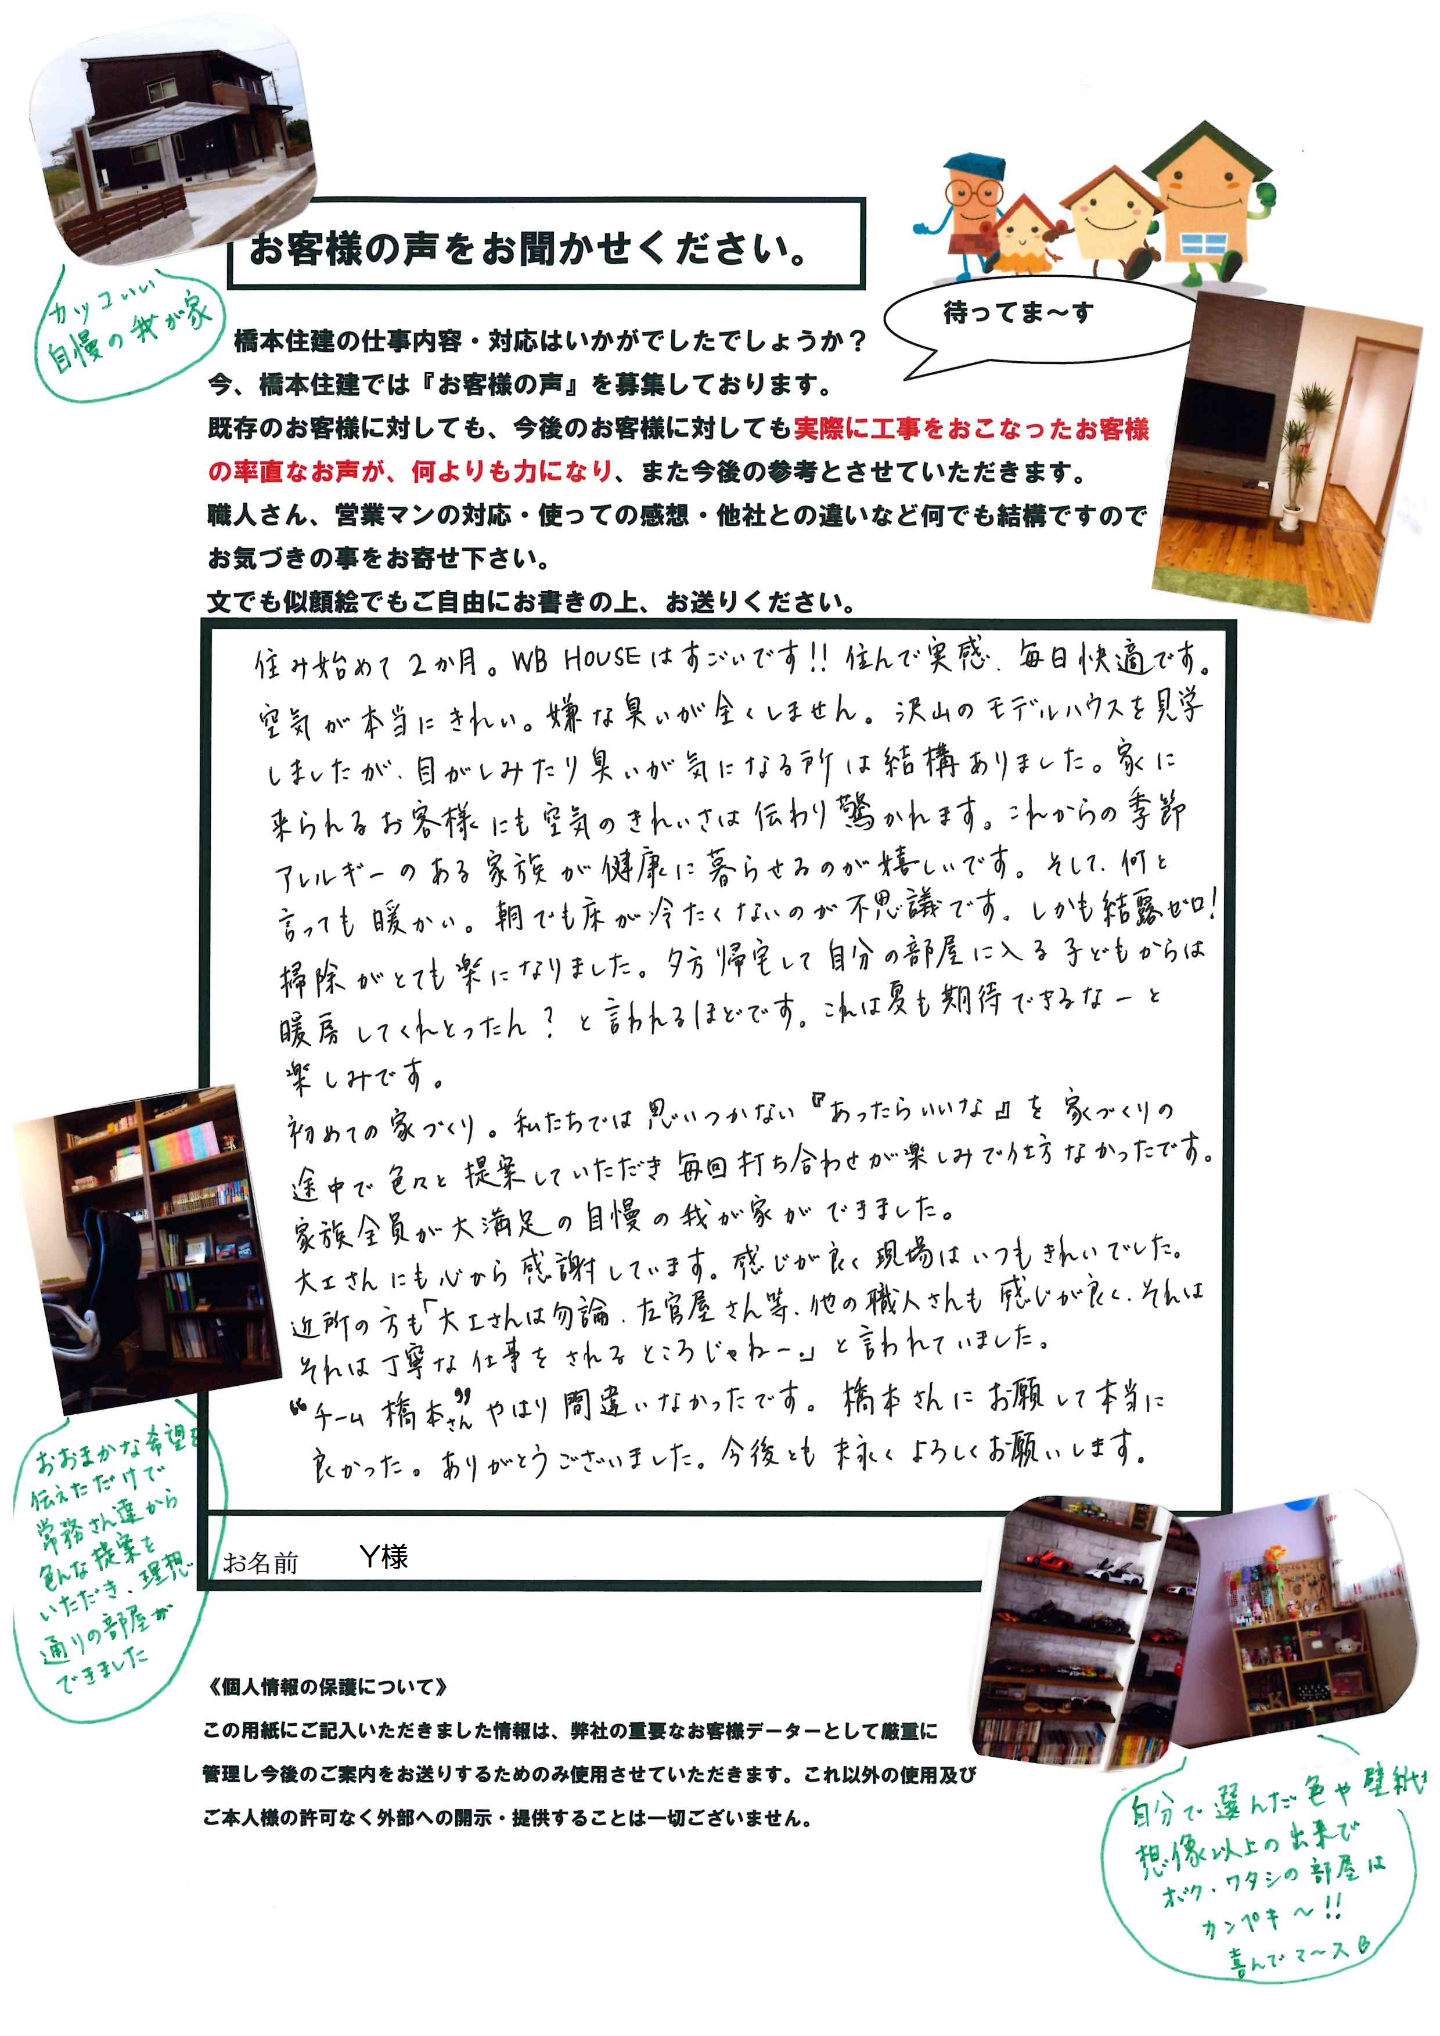 お客様の声をお聞かせください。
カッコいい
自慢の我が家
待ってま～す
橋本住建の仕事内容・対応はいかがでしたでしょうか？
今、橋本住建では『お客様の声』を募集しております。
既存のお客様に対しても、今後のお客様に対しても実際に工事をおこなったお客様
の率直なお声が、何よりも力になり、また今後の参考とさせていただきます。
職人さん、営業マンの対応・使っての感想・他社との違いなど何でも結構ですので
お気づきの事をお寄せ下さい。
文でも似顔絵でもご自由にお書きの上、お送りください。
住み始めて2か月。WB HOUSEはすごいです!! 住んで実感、毎日快適です。
空気が本当にきれい。嫌な臭いが全くしません。沢山のモデルハウスを見学
しましたが、目がしみたり臭いが気になる所は結構ありました。家に
来られるお客様にも空気のきれいさは伝わり驚かれます。これからの季節
アレルギーのある家族が健康に暮らせるのが嬉しいです。そして、何と
言っても暖かい。朝でも床が冷たくないのが不思議です。しかも結露ゼロ!
掃除がとても楽になりました。夕方帰宅して自分の部屋に入る子どもからは
暖房してくれとったん？と言われるほどです。これは夏も期待できるなーと
楽しみです。
初めての家づくり。私たちでは思いつかない『あったらいいな』を家づくりの
途中で色々と提案していただき毎回打ち合わせが楽しみで仕方なかったです。
家族全員が大満足の自慢の我が家ができました。
大工さんにも心から感謝しています。感じが良く現場はいつもきれいでした。
近所の方も「大工さんは勿論、左官屋さん等、他の職人さんも感じが良く、それは
それは丁寧な仕事をされるところじゃねー。」と言われていました。
“チーム橋本さん”やはり間違いなかったです。橋本さんにお願して本当に
良かった。ありがとうございました。今後とも末永くよろしくお願いします。
お名前 Y様
おおまかな希望を
伝えただけで
常務さん達から
色んな提案を
いただき、理想
通りの部屋が
できました
《個人情報の保護について》
この用紙にご記入いただきました情報は、弊社の重要なお客様データーとして厳重に
管理し今後のご案内をお送りするためのみ使用させていただきます。これ以外の使用及び
ご本人様の許可なく外部への開示・提供することは一切ございません。
自分で選んだ色や壁紙
想像以上の出来で
ボク・ワタシの部屋は
カンペキ～!!
喜んでマ～ス